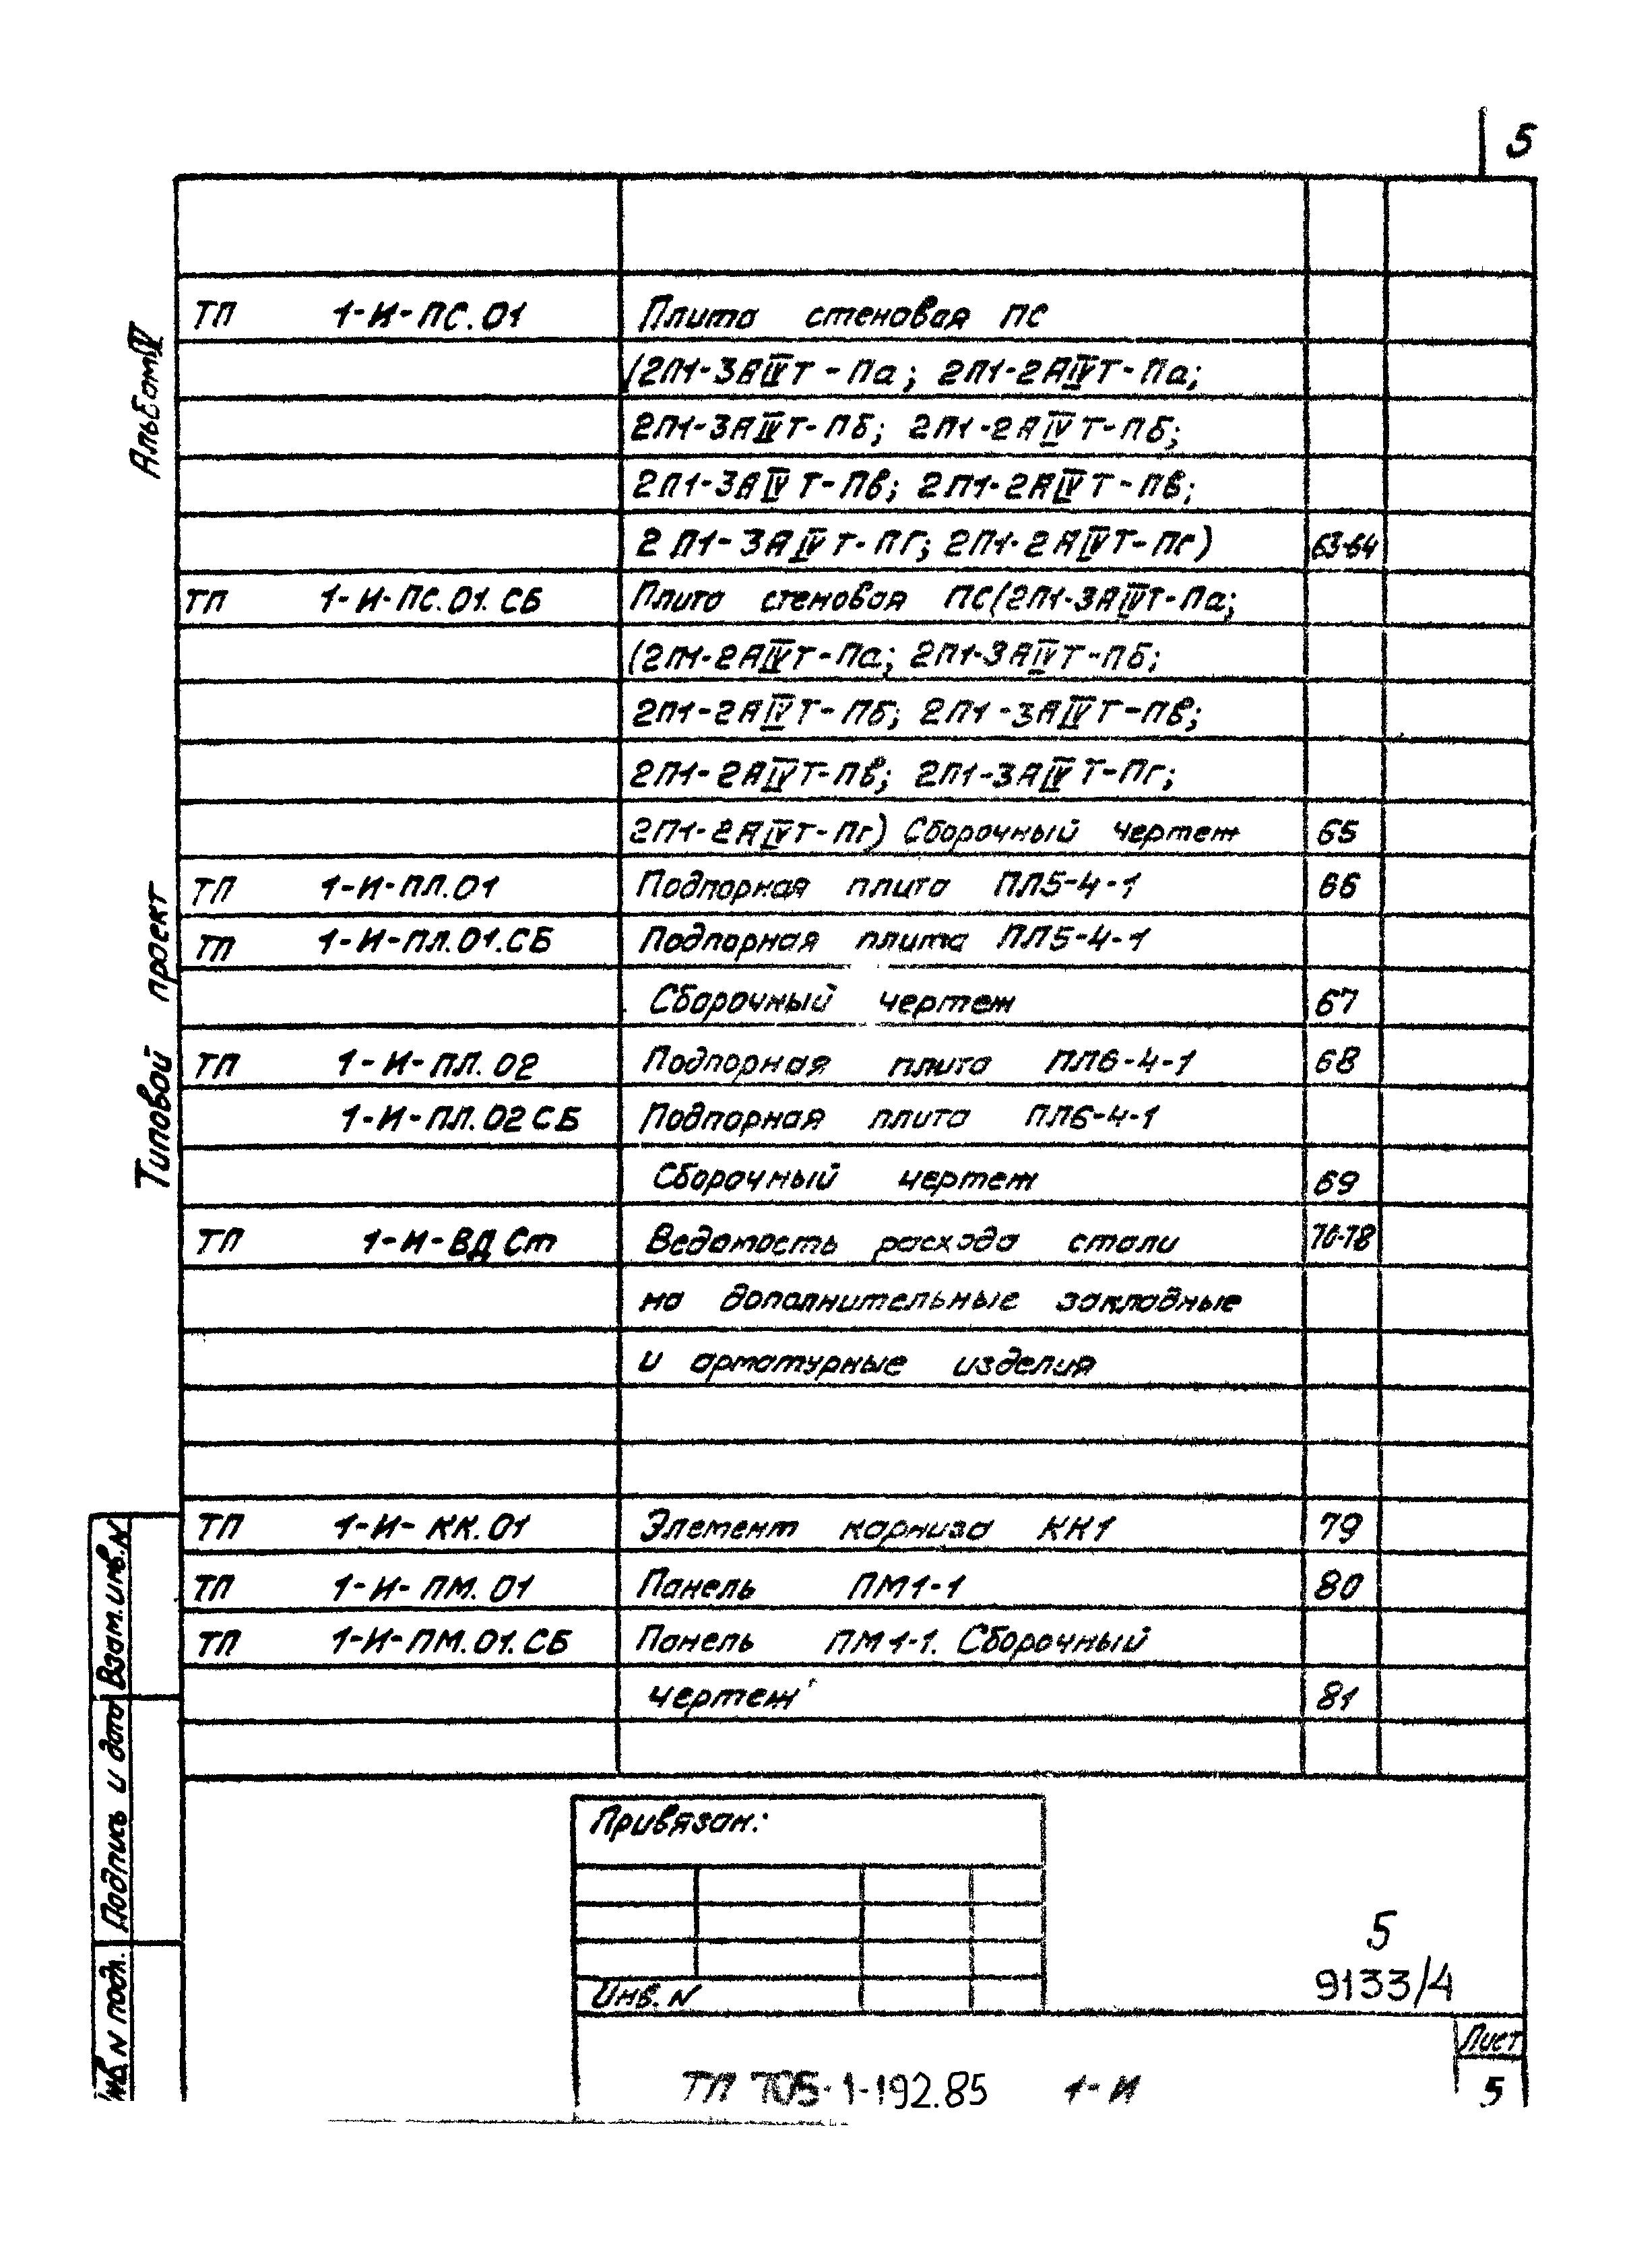 5
ТП 1-И-ПС.01 Плита стеновая ПС
(2П1-3АIVТ-Па; 2П1-2АIVТ-Па;
2П1-3АIVТ-Пб; 2П1-2АIVТ-Пб;
2П1-3АIVТ-Пв; 2П1-2АIVТ-Пв;
2П1-3АIVТ-Пг; 2П1-2АIVТ-Пг) 63-64
ТП 1-И-ПС.01.СБ Плита стеновая ПС(2П1-3АIVТ-Па;
(2П1-2АIVТ-Па; 2П1-3АIVТ-Пб;
2П1-2АIVТ-Пб; 2П1-3АIVТ-Пв;
2П1-2АIVТ-Пв; 2П1-3АIVТ-Пг;
2П1-2АIVТ-Пг) Сборочный чертеж 65
ТП 1-И-ПЛ.01 Подпорная плита ПЛ5-4-1 66
ТП 1-И-ПЛ.01.СБ Подпорная плита ПЛ5-4-1
Сборочный чертеж 67
ТП 1-И-ПЛ.02 Подпорная плита ПЛ6-4-1 68
1-И-ПЛ.02 СБ Подпорная плита ПЛ6-4-1
Сборочный чертеж 69
ТП 1-И-ВД Ст Ведомость расхода стали 70-78
на дополнительные закладные
и арматурные изделия
ТП 1-И-КК.01 Элемент карниза КК1 79
ТП 1-И-ПМ.01 Панель ПМ1-1 80
ТП 1-И-ПМ.01.СБ Панель ПМ1-1. Сборочный
чертеж 81
Альбом IV
Типовой проект
Взам. инв. N
Подпись и дата
Инв. N подл.
Привязан:
Инв. N
5
9133/4
Лист
5
ТП 705-1-192.85 1-И